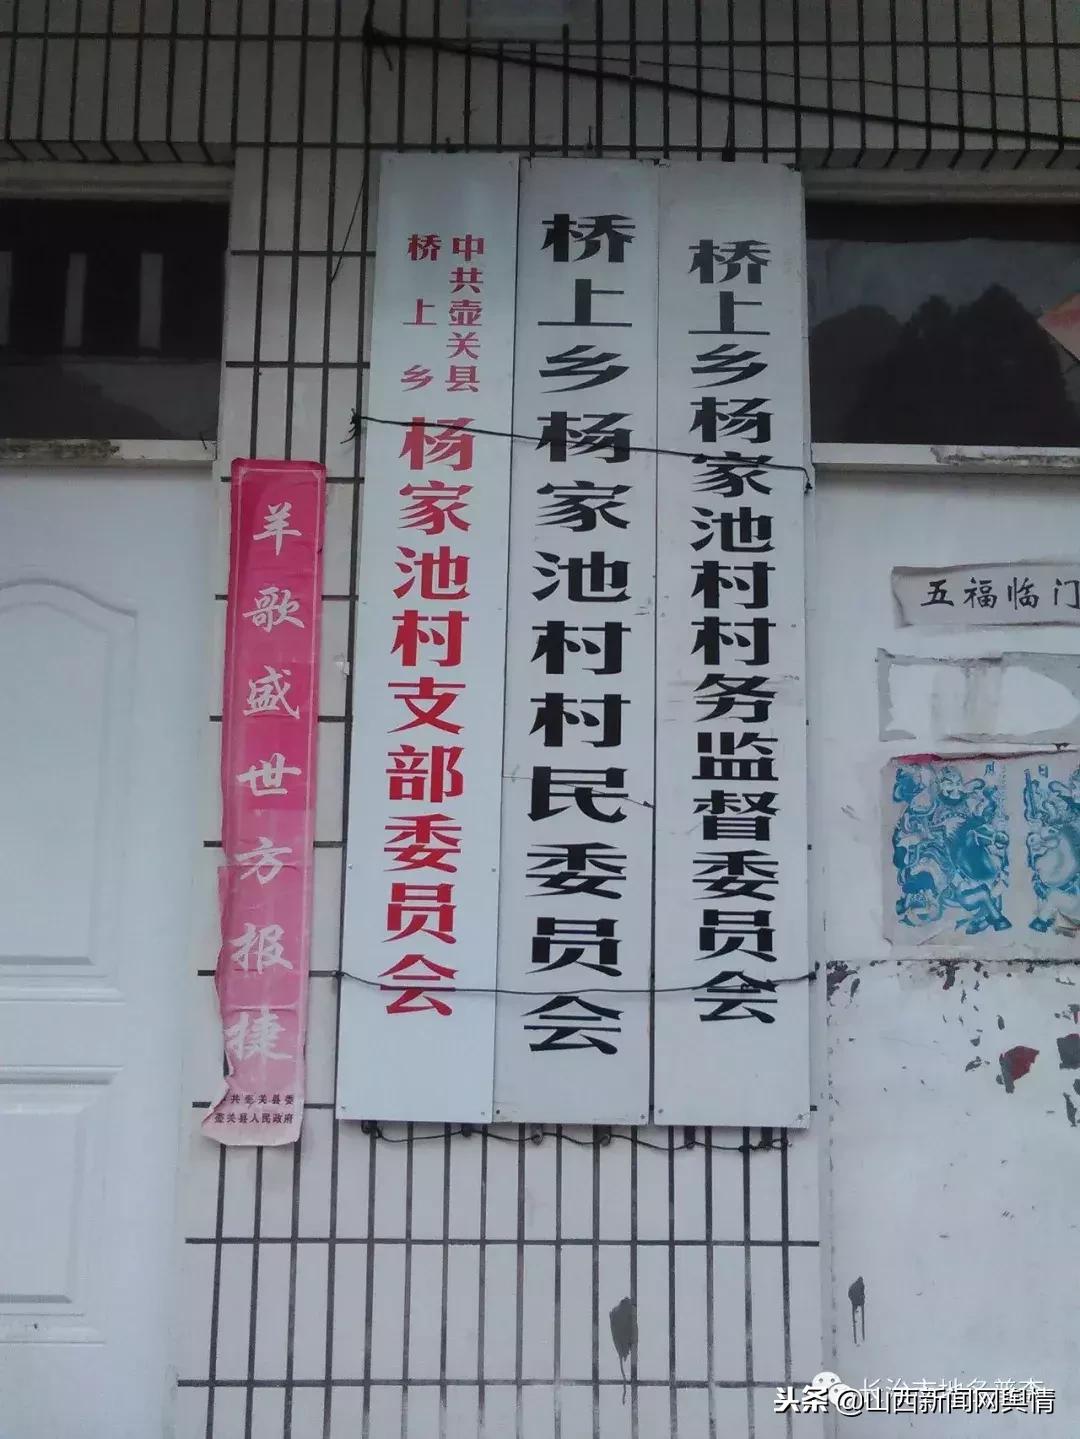 中共壶关县
桥上乡
杨家池村支部委员会
桥上乡杨家池村村民委员会
桥上乡杨家池村村务监督委员会
羊歌盛世方报捷
共壶关县委
壶关县人民政府
五福临门
日
月
长治市地名普查
头条@山西新闻网舆情